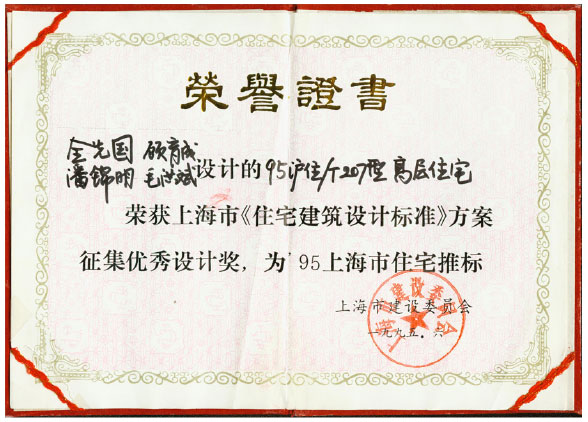 榮譽證書
全先国 顾育成
潘錦明 毛洪斌 设计的95沪住/个207型高层住宅
荣获上海市《住宅建筑设计标准》方案
征集优秀设计奖，为'95上海市住宅推标
上海市建设委员会
一九九五．六
上海市建设委员会